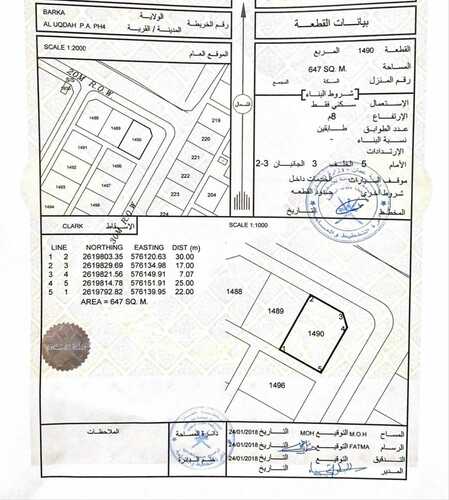 BARKA
الولاية
AL UQDAH P.A PH4
المدينة / القرية
رقم الخريطة
بيانات القطعة
SCALE 1:2000
الموقع العام
القطعة 1490 المربع
المساحة 647 SQ. M.
رقم المنزل المجمع
شروط البناء
الإستعمال سكني فقط
الإرتفاع 8م
عدد الطوابق طابقين
نسبة البناء
الإرتدادات
الأمام 5 الخلف 3 الجانبان 2-3
موقف السيارات داخل
شروط أخرى حدود القطعه
المخطط التاريخ
20M R.O.W
30M R.O.W
الشمال
1488
1489
1490
1491
1495
1496
219
220
221
222
CLARK
الإسقاط
SCALE 1:1000
LINE NORTHING EASTING DIST (m)
1 2 2619803.35 576120.63 30.00
2 3 2619829.69 576134.98 17.00
3 4 2619821.56 576149.91 7.07
4 5 2619814.78 576151.91 25.00
5 1 2619792.82 576139.95 22.00
AREA = 647 SQ. M.
1488
1489
1490
1496
1
2
3
4
5
الملاحظات
دائرة المساحة
ختم الدائرة
المساح M.O.H التوقيع MOH التاريخ 24/01/2018
الرسام FATMA التوقيع التاريخ 24/01/2018
التدقيق التوقيع التاريخ 24/01/2018
المدير التوقيع التاريخ